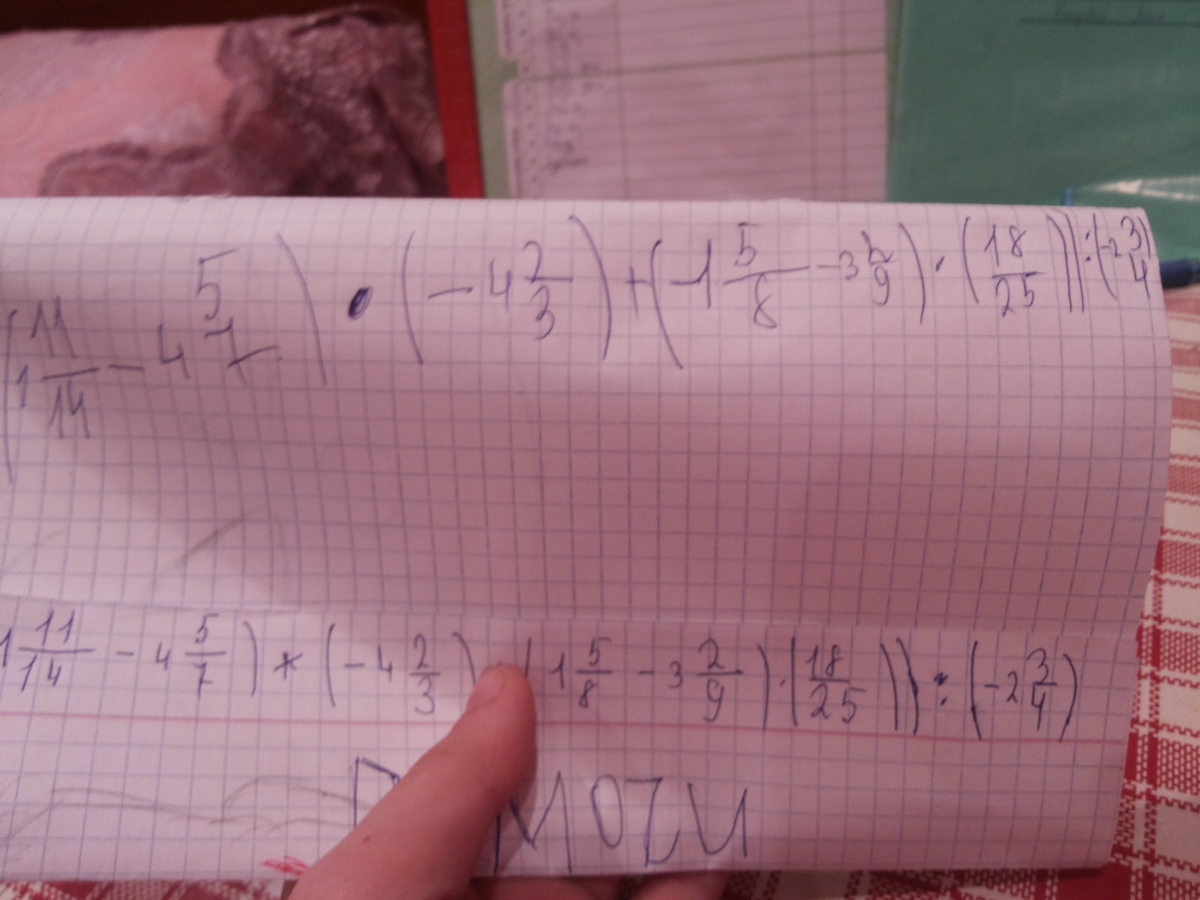 (1 11/14 - 4 5/7) • (- 4 2/3) + (-1 5/8 - 3 2/9) · (18/25)) : (-2 3/4)
1 11/14 - 4 5/7) * (- 4 2/3) (1 5/8 - 3 2/9) · (18/25)) : (-2 3/4)